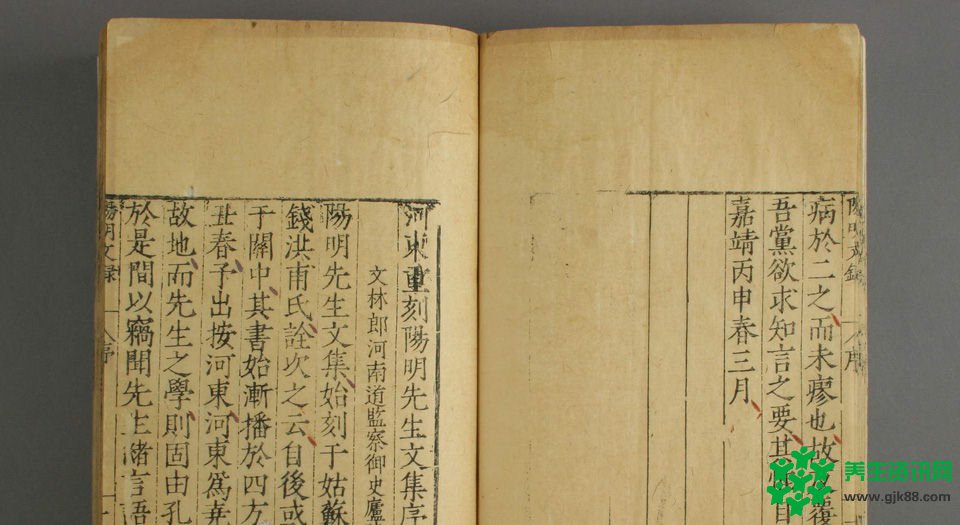 陽明文錄
病於二之而未瘳也故
吾黨欲求知言之要其
嘉靖丙申春三月
河東重刻陽明先生文集序
文林郎河南道監察御史廬
陽明先生文集始刻于姑蘇
錢洪甫氏詮次之云自後或
于關中其書始漸播於四方
丑春予出按河東河東為堯
故地而先生之學則固由孔
於是間以竊聞先生緒言吾
陽明文錄 序
养生资讯网
www.gjk88.com